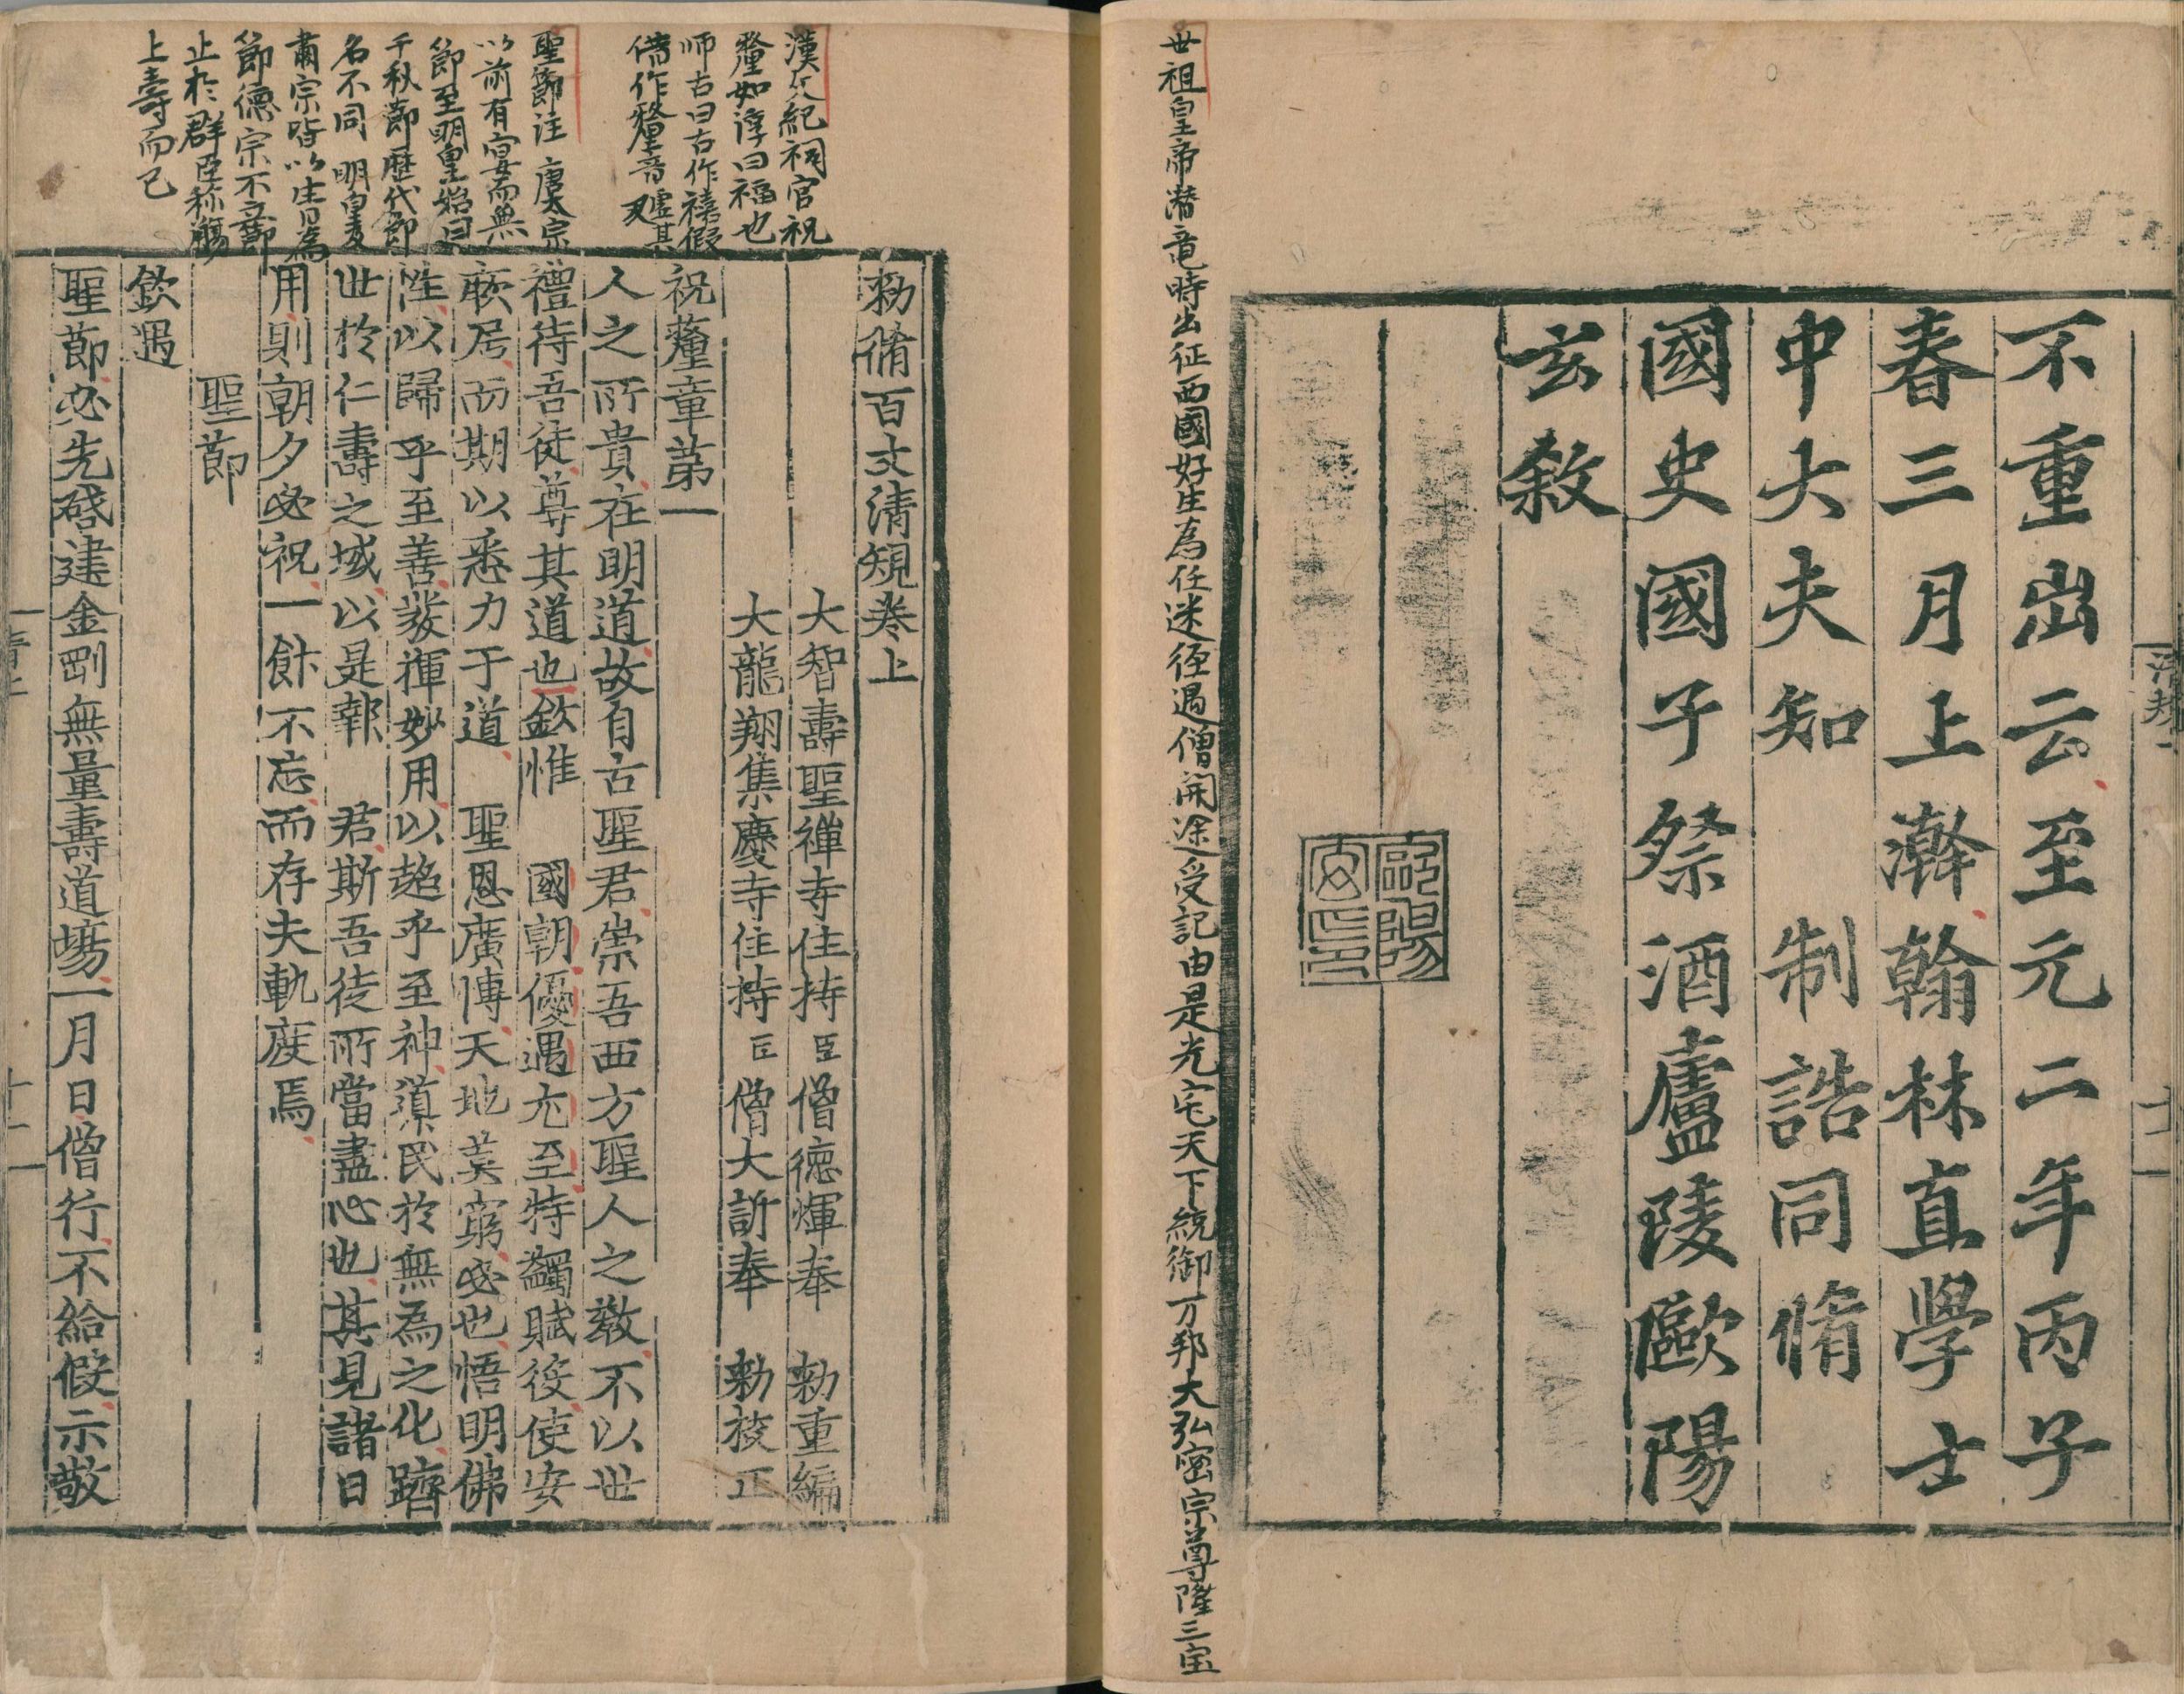 不重出云至元二年丙子
春三月上澣翰林直學士
中大夫知　制誥同脩
國史國子祭酒廬陵歐陽
玄敘
歐陽
玄印
世祖皇帝潜竜時出征西國好生為任迷徑遇僧開途受記由是光宅天下統御万邦大弘密宗尊隆三宝
漢文紀祠官祝
釐如淳曰福也
师古曰古作禧假
借作釐音虚其
聖節注　唐太宗
以前有宴而無
節至明皇始曰
千秋節歷代節
名不同　明皇
肅宗皆以生日為
節德宗不立節
止於群臣称觴
上壽而已
勑脩百丈清規卷上
大智壽聖禪寺住持臣僧德煇奉　勑重編
大龍翔集慶寺住持臣僧大訢奉　勑校正
祝釐章第一
人之所貴在明道故自古聖君崇吾西方聖人之教不以世
禮待吾徒尊其道也欽惟　國朝優遇尤至特蠲賦役使安
厥居而期以悉力于道　聖恩廣博天地莫窮必也悟明佛
性以歸乎至善發揮妙用以超乎至神導民於無為之化躋
世於仁壽之域以是報　君斯吾徒所當盡心也其見諸日
用則朝夕必祝一飰不忘而存夫軌度焉
聖節
欽遇
聖節必先啓建金剛無量壽道場一月日僧行不給假示敬